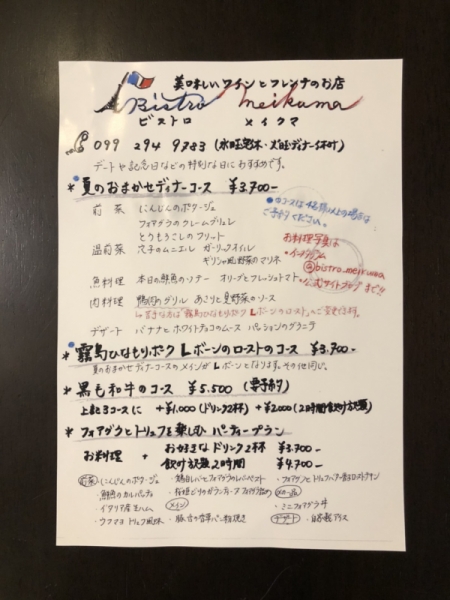 美味しいワインとフレンチのお店
Bistro meikuma
ビストロ メイクマ
099 294 9783 (水曜定休・火曜ディナー休み)
デートや記念日などの特別な日におすすめです。
*夏のおまかせディナーコース ¥3.700-
前菜 にんじんのポタージュ
フォアグラのクレームブリュレ
とうもろこしのフリット
温前菜 穴子のムニエル ガーリックオイル
ギリシャ風野菜のマリネ
魚料理 本日の鮮魚のソテー オリーブとフレッシュトマト
肉料理 鴨肉のグリル あごりと夏野菜のソース
お好きな方は「霧島ひなもりポーク Lボーンのロースト」のご変更も可。
デザート バナナとホワイトチョコのムース パッションのグラニテ
●のコースは4名様以上の場合は
ご予約ください。
お料理写真は
インスタグラム
@bistro.meikuma
公式サイトブログまで!!
*霧島ひなもりポーク Lボーンのローストのコース ¥3.700-
夏のおまかせディナーコースのメインがLボーンとなります。その他同じ。
*黒毛和牛のコース ¥5.500 (要予約)
上記3コースに +¥1.000(ドリンク2杯) +¥2.000(2時間飲み放題)
*フォアグラとトリュフを楽しむ パーティープラン
お料理 + お好きなドリンク2杯 ¥3.700-
飲み放題2時間 ¥4.700-
前菜 ・にんじんのポタージュ
・鮮魚のカルパッチョ
・イタリア産生ハム
・ウフマヨ トリュフ風味
メイン
・豚舌の香草パン粉焼き
・ミニフォアグラ丼
デザート ・自家製アイス